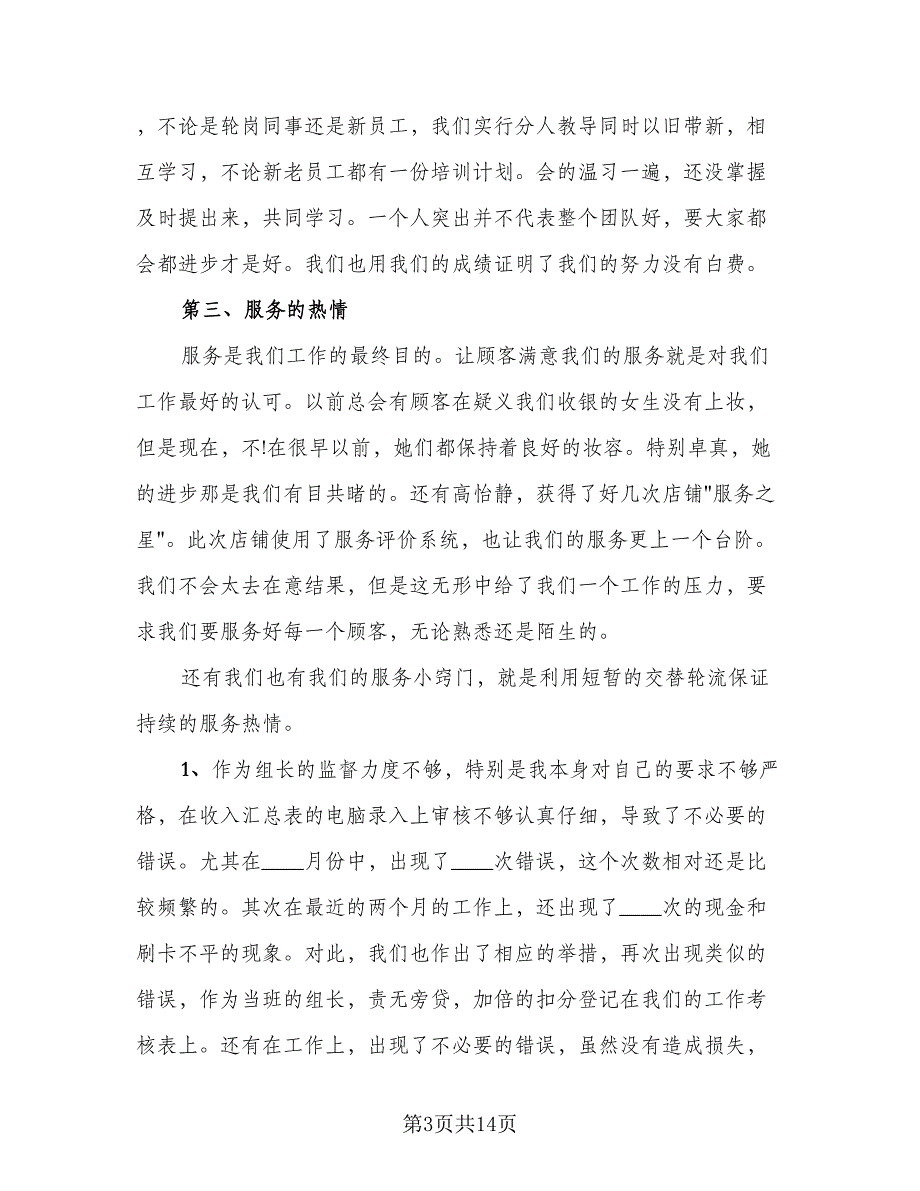 ，不论是轮岗同事还是新员工，我们实行分人教导同时以旧带新，相
互学习，不论新老员工都有一份培训计划。会的温习一遍，还没掌握
及时提出来，共同学习。一个人突出并不代表整个团队好，要大家都
会都进步才是好。我们也用我们的成绩证明了我们的努力没有白费。
第三、服务的热情
服务是我们工作的最终目的。让顾客满意我们的服务就是对我们
工作最好的认可。以前总会有顾客在疑义我们收银的女生没有上妆，
但是现在，不!在很早以前，她们都保持着良好的妆容。特别卓真，她
的进步那是我们有目共睹的。还有高怡静，获得了好几次店铺"服务之
星"。此次店铺使用了服务评价系统，也让我们的服务更上一个台阶。
我们不会太去在意结果，但是这无形中给了我们一个工作的压力，要
求我们要服务好每一个顾客，无论熟悉还是陌生的。
还有我们也有我们的服务小窍门，就是利用短暂的交替轮流保证
持续的服务热情。
1、作为组长的监督力度不够，特别是我本身对自己的要求不够严
格，在收入汇总表的电脑录入上审核不够认真仔细，导致了不必要的
错误。尤其在____月份中，出现了____次错误，这个次数相对还是比
较频繁的。其次在最近的两个月的工作上，还出现了____次的现金和
刷卡不平的现象。对此，我们也作出了相应的举措，再次出现类似的
错误，作为当班的组长，责无旁贷，加倍的扣分登记在我们的工作考
核表上。还有在工作上，出现了不必要的错误，虽然没有造成损失，
第3页共14页